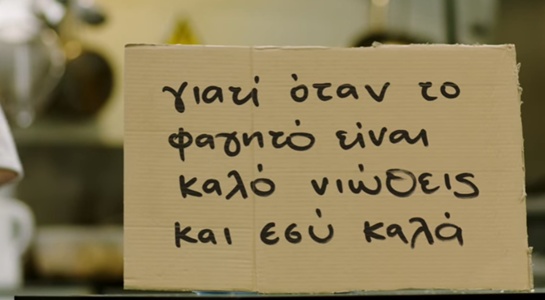 γιατί όταν το
φαγητό είναι
καλό νιώθεις
και εσύ καλά